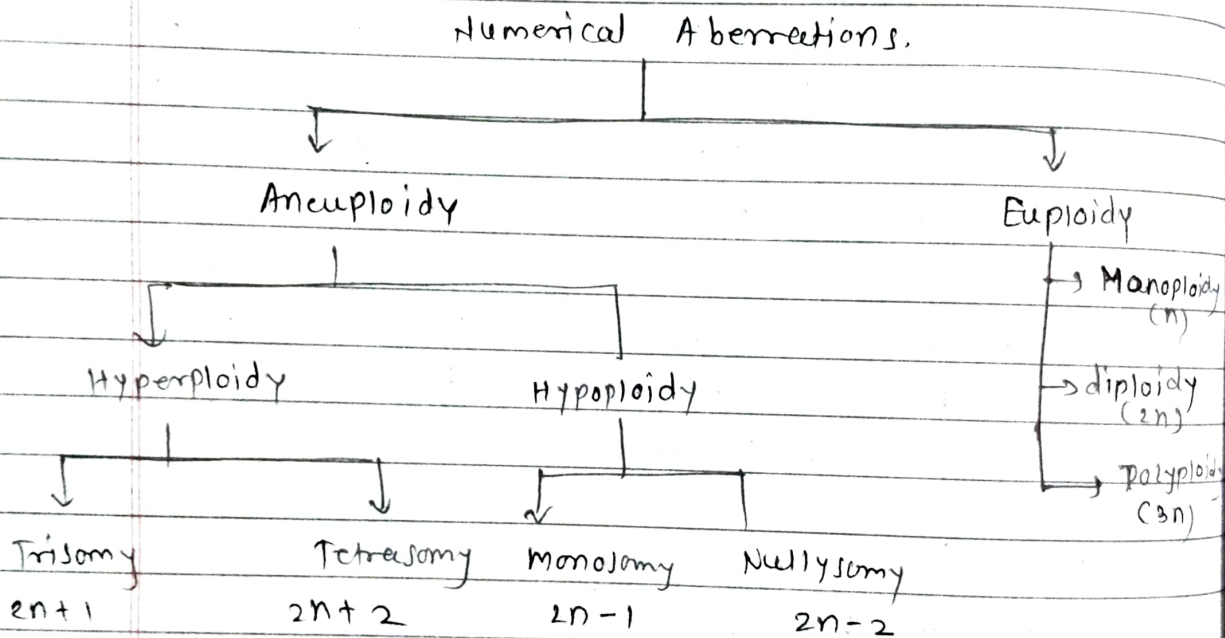 Numerical Aberreations.
Aneuploidy
Euploidy
Manoploidy
(n)
diploidy
(2n)
Polyploidy
(3n)
Hyperploidy
Hypoploidy
Trisomy
2n+1
Tetrasomy
2n+2
Monosomy
2n-1
Nullysomy
2n-2